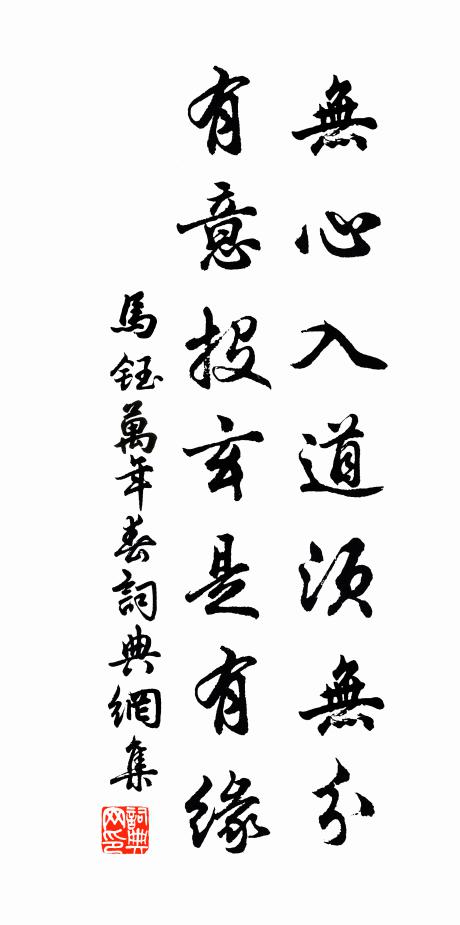 無心入道須無分
有意投玄是有緣
馬鈺萬年春詞典網集
詞典网印